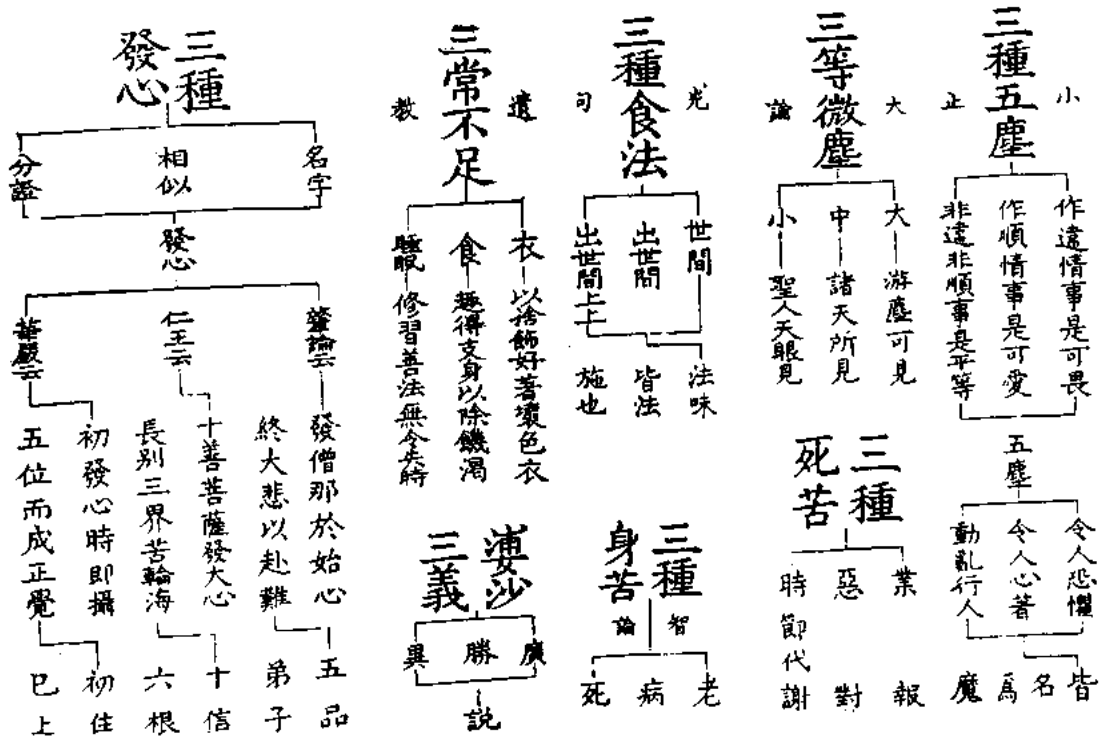 三種五塵
小正
作違情事是可畏
作順情事是可愛
非違非順事是平等
五塵
令人恐懼
令人心著
動亂行人
皆名爲魔
三等微塵
大論
大 游塵可見
中 諸天所見
小 聖人天眼見
三種死苦
業報
惡對
時節代謝
三種食法
光句
世間
出世間
出世間上上
法味
皆法
施也
三種身苦
智論
老
病
死
三常不足
遺教
衣 以捨飾好著壞色衣
食 趣得支身以除饑渴
睡眠 修習善法無令失時
婆沙三義
廣
勝
異
說
三種發心
名字
相似
分證
發心
肇論云
發僧那於始心
終大悲以赴難
五品
弟子
仁王云
十善菩薩發大心
長别三界苦輪海
十信
六根
華嚴云
初發心時即攝
五位而成正覺
初住
巳上